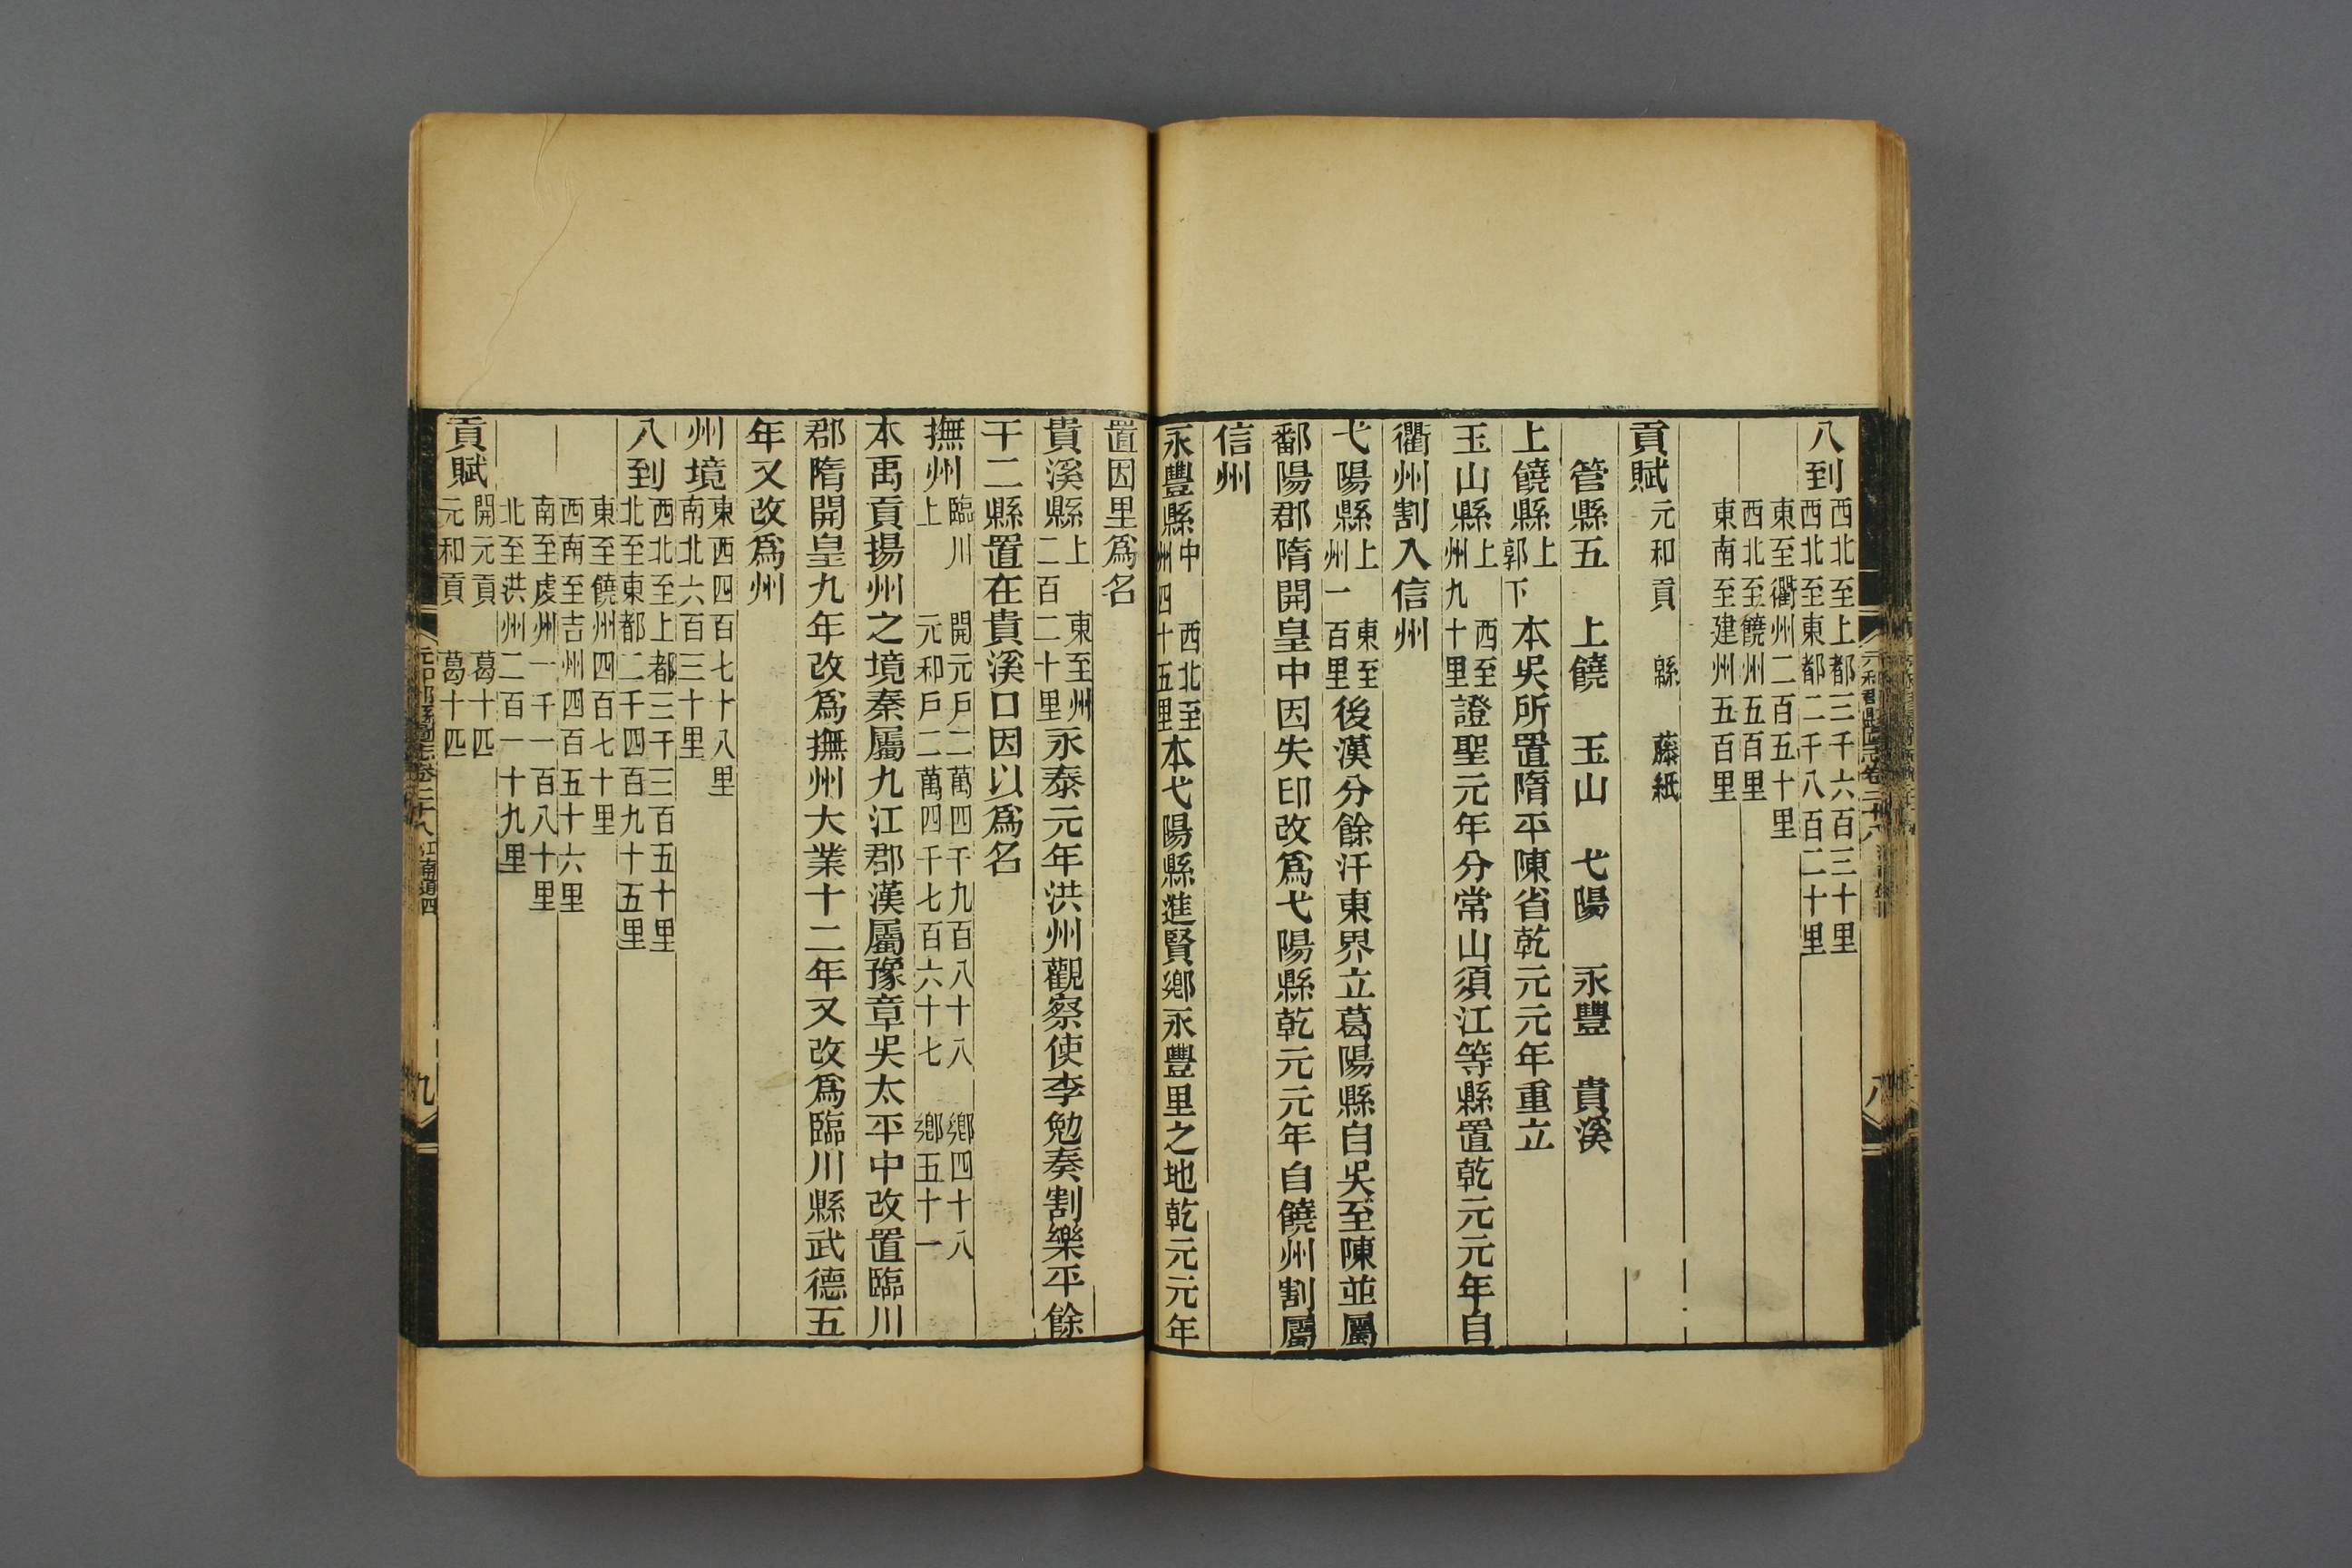 八到西北至上都三千六百三十里
西北至東都二千八百二十里
東至衢州二百五十里
西北至饒州五百里
東南至建州五百里
貢賦元和貢 緜 藤紙
管縣五 上饒 玉山 弋陽 永豐 貴溪
上饒縣上郭下本吳所置隋平陳省乾元元年重立
玉山縣上西至州九十里證聖元年分常山須江等縣置乾元元年自
衢州割入信州
弋陽縣上東至州一百里後漢分餘汗東界立葛陽縣自吳至陳並屬
鄱陽郡隋開皇中因失印改爲弋陽縣乾元元年自饒州割屬
信州
永豐縣中西北至州四十五里本弋陽縣進賢鄉永豐里之地乾元元年
置因里爲名
貴溪縣上東至州二百二十里永泰元年洪州觀察使李勉奏割樂平餘
干二縣置在貴溪口因以爲名
撫州臨川上 開元戶二萬四千九百八十八 鄉四十八
元和戶二萬四千七百六十七 鄉五十一
本禹貢揚州之境秦屬九江郡漢屬豫章吳太平中改置臨川
郡隋開皇九年改爲撫州大業十二年又改爲臨川縣武德五
年又改爲州
州境東西四百七十八里
南北六百三十里
八到西北至上都三千三百五十里
北至東都二千四百九十五里
東至饒州四百七十里
西南至吉州四百五十六里
南至虔州一千一百八十里
北至洪州二百一十九里
貢賦開元貢 葛十匹
元和貢 葛十匹
元和郡縣圖志卷二十八 江南道四
九